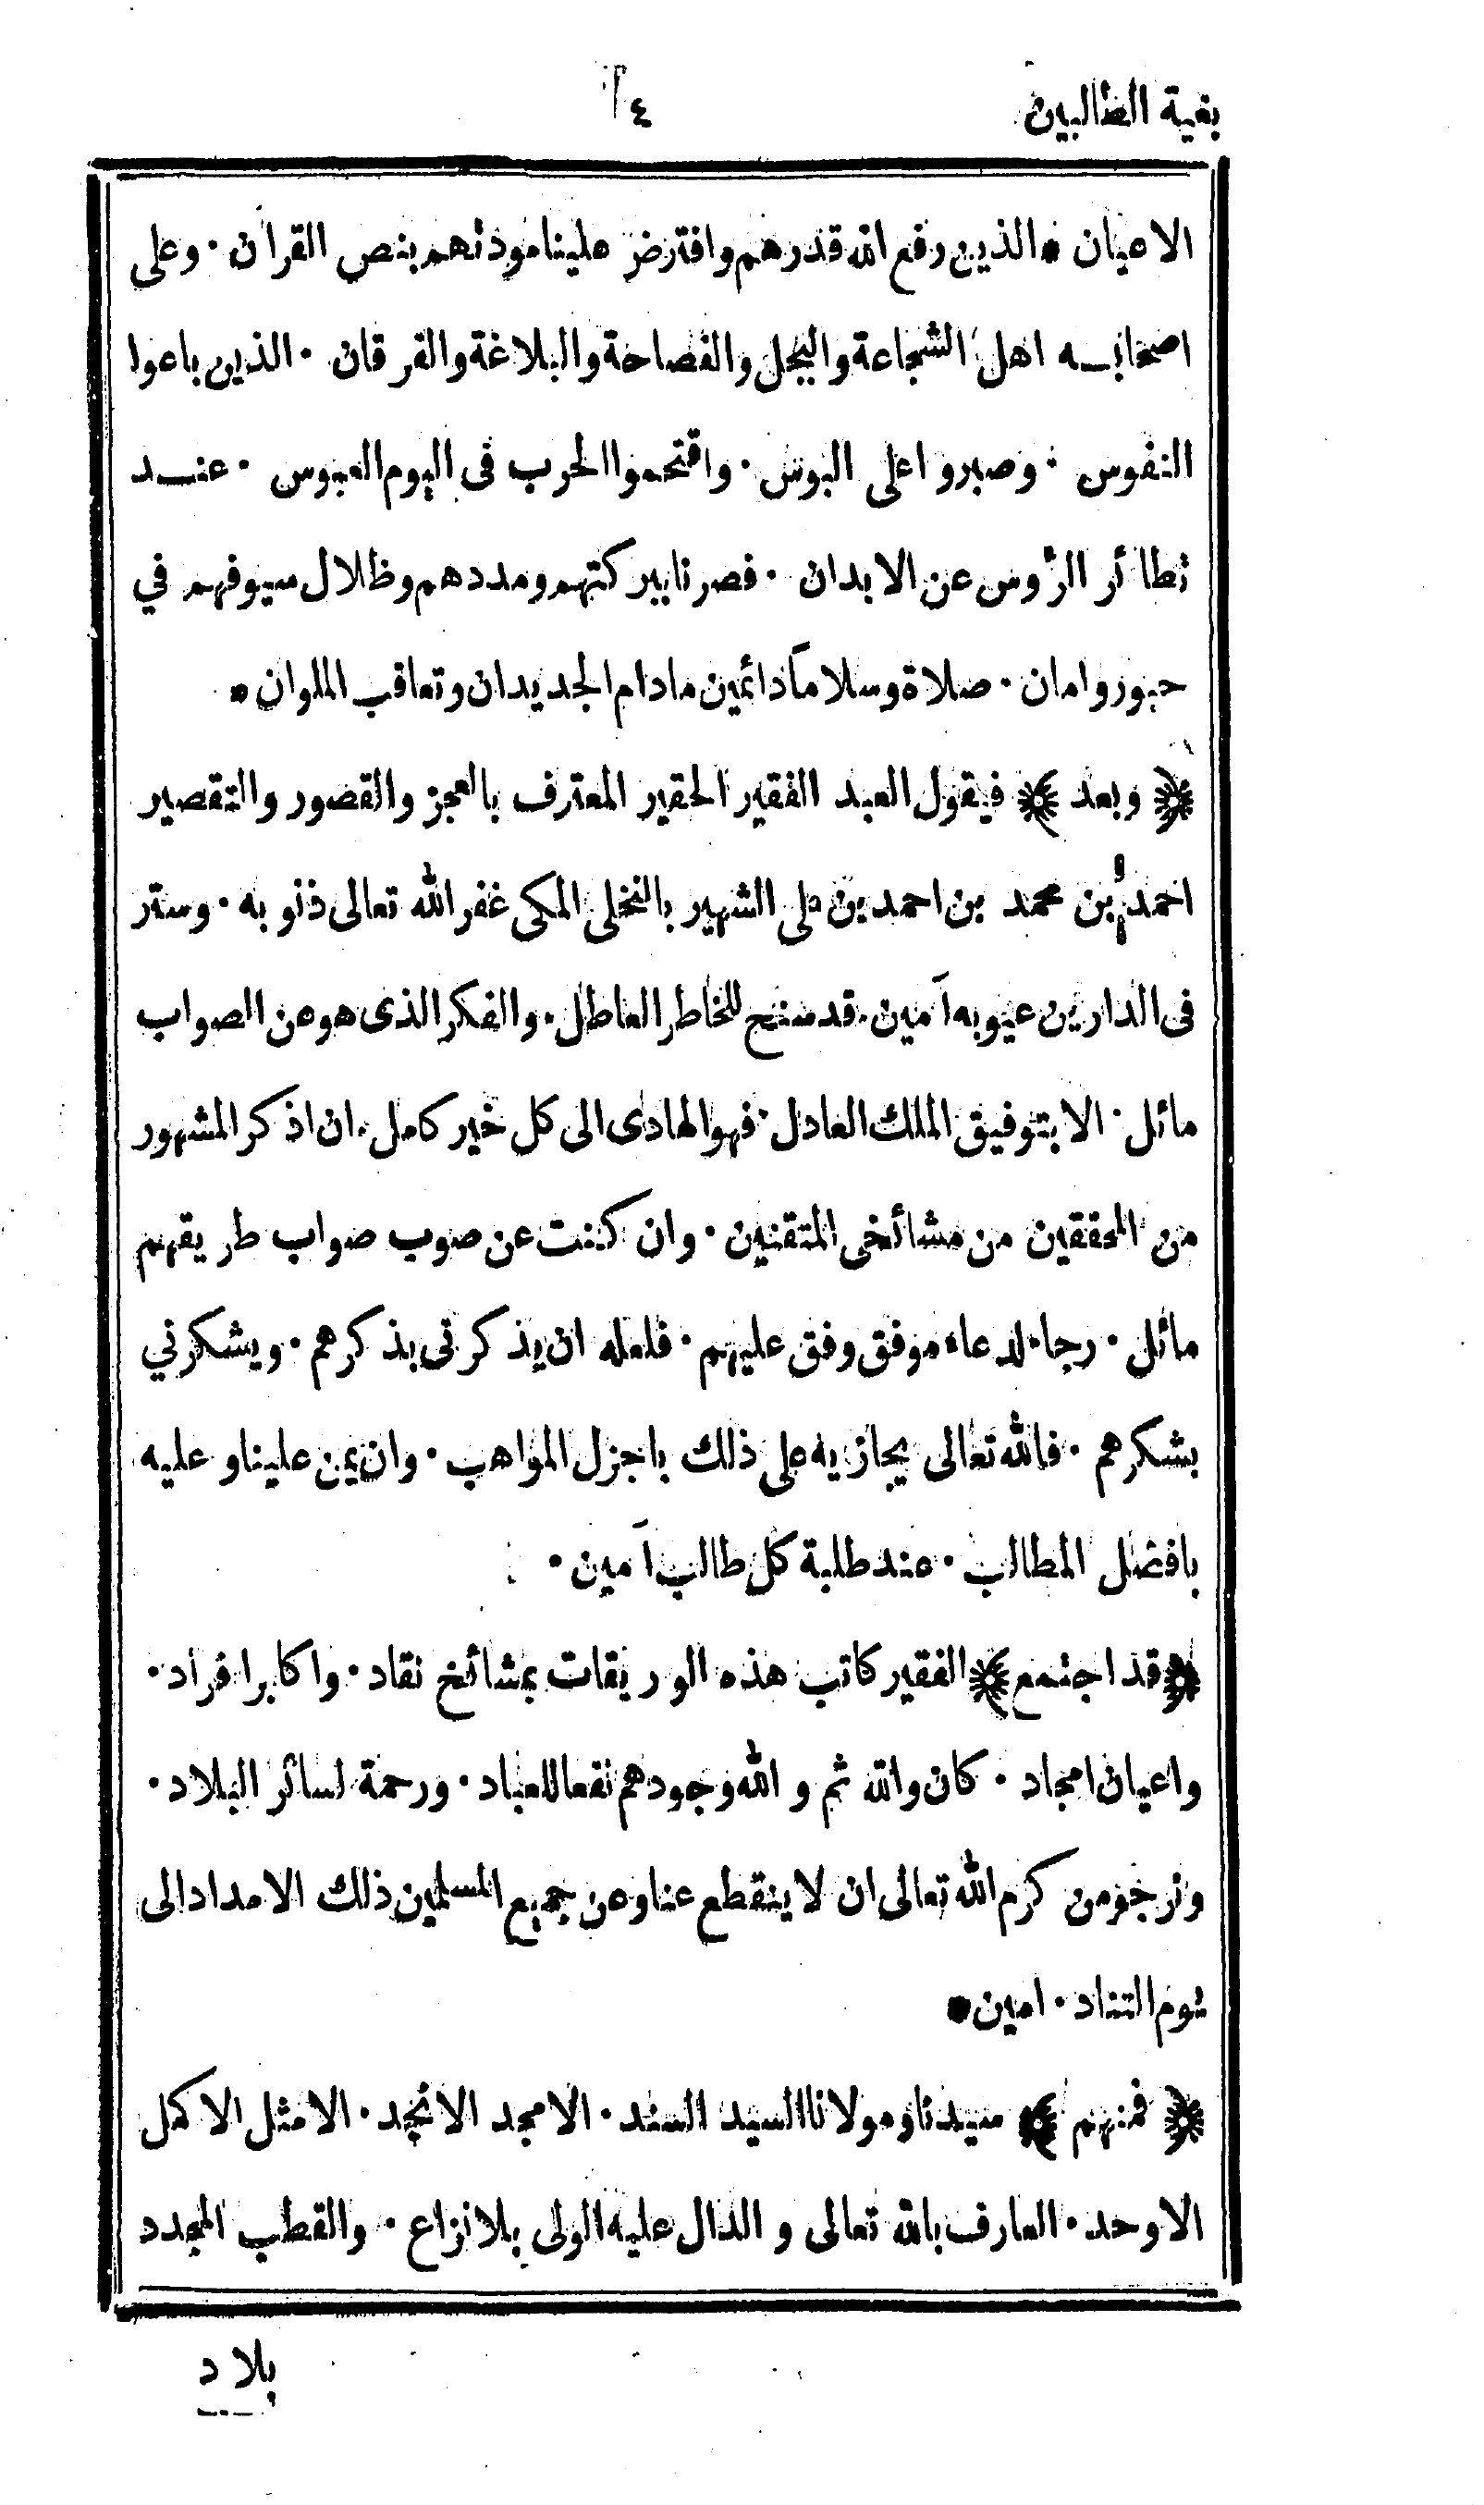 بغية الطالبين
٤
الاعيان • الذين رفع الله قدرهم وافترض علينا مودتهم بنص القرآن · وعلى
اصحابه اهل الشجاعة والبجل والفصاحة والبلاغة والفرقان · الذين باعوا
النفوس · وصبروا على البوس · واقتحموا الحرب فى اليوم العبوس · عند
تطائر الرؤس عن الابدان · فصرنا ببركتهم ومددهم وظلال سيوفهم في
حبور وامان · صلاة وسلاماً دائمين مادام الجديدان وتعاقب الملوان •
﴿ وبعد ﴾ فيقول العبد الفقير الحقير المعترف بالعجز والقصور والتقصير
احمد بن محمد بن احمد بن علي الشهير بالنخلى المكى غفر الله تعالى ذنوبه · وستر
فى الدارين عيوبه آمين · قد سنح للخاطر العاطل · والفكر الذى هو عن الصواب
مائل · الا بتوفيق الملك العادل · فهو الهادى الى كل خير كامل · ان اذكر المشهور
من المحققين من مشائخى المتقنين · وان كنت عن صوب صواب طريقهم
مائل · رجاء لدعاء موفق وفق عليهم · فلعله ان يذكرنى بذكرهم · ويشكرني
بشكرهم · فالله تعالى يجازيه على ذلك باجزل المواهب · وان يمن علينا وعليه
بافضل المطالب · عند طلبة كل طالب آمين ·
﴿ قد اجتمع ﴾ الفقير كاتب هذه الوريقات بمشائخ نقاد · واكابر افراد ·
واعيان امجاد · كان والله ثم والله وجودهم نفعا للعباد · ورحمة لسائر البلاد ·
ونرجو من كرم الله تعالى ان لا ينقطع عنا وعن جميع المسلمين ذلك الامداد الى
يوم التناد · امين •
﴿ فمنهم ﴾ سيدنا ومولانا السيد السند · الامجد الانجد · الامثل الاكمل
الاوحد · العارف بالله تعالى و الدال عليه الولى بلا نزاع · والقطب المجدد
بلاد